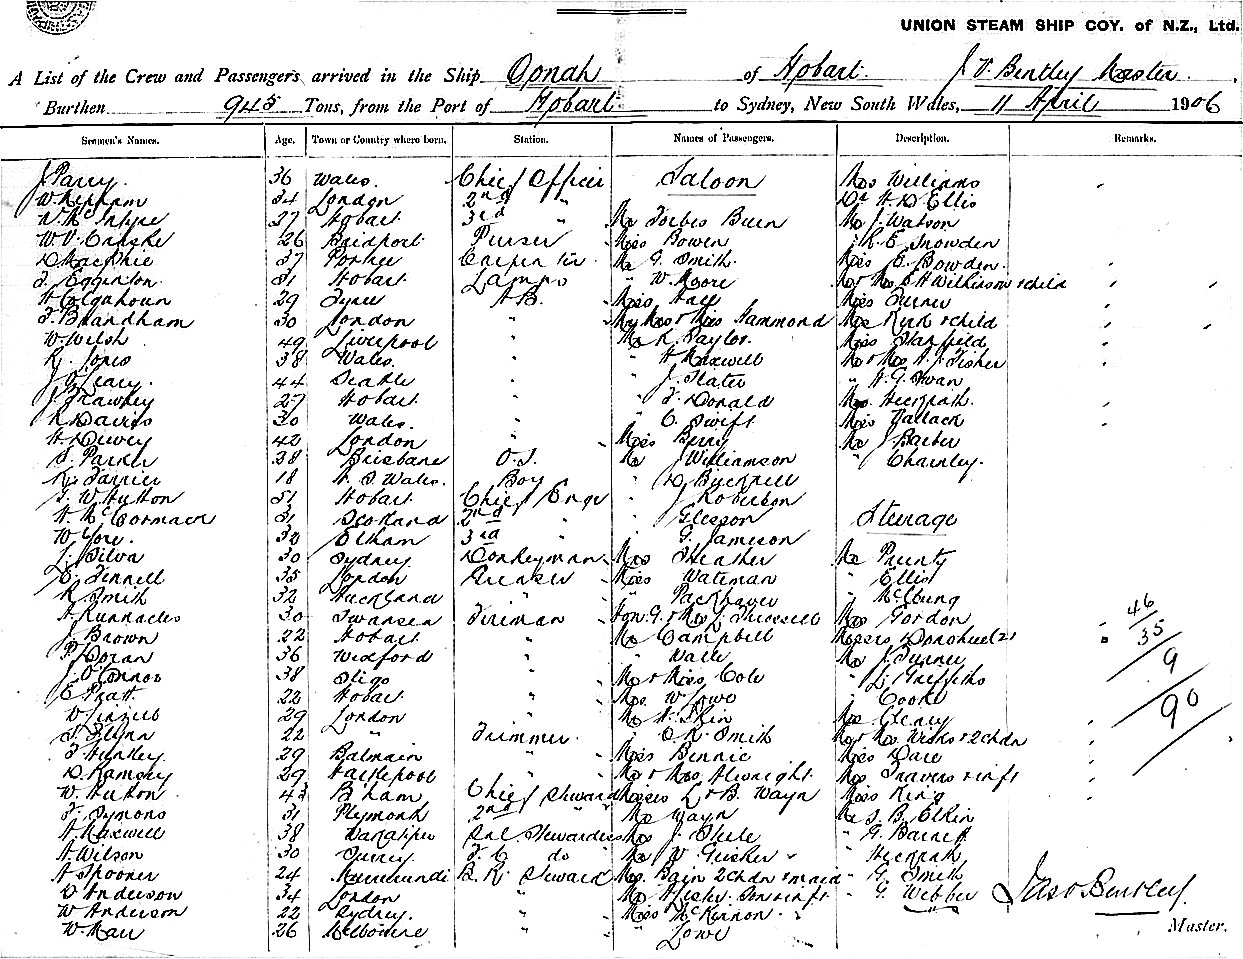 UNION STEAM SHIP COY. of N.Z., Ltd.
A List of the Crew and Passengers arrived in the Ship Oonah of Hobart J V Bentley Master
Burthen 945 Tons, from the Port of Hobart to Sydney, New South Wales, 11 April 1906
Seamen's Names. Age. Town or Country where born. Station. Names of Passengers. Description. Remarks.
J Parry 36 Wales Chief Officer Saloon Mrs Williams
W. Kirkham 34 London 2nd " Dr H D Ellis
N. McIntyre 27 Hobart 3rd " Mr Forbes Burn Mr J Watson
26 Bridport Purser Miss Bowen R. E. Snowden
D MacPhie 37 Carpenter Mr G. Smith Miss E. Bowden
F. Egginton 31 Hobart Lamps " W. Moore Mr & Mrs Wilkinson & child
H Colquhoun 29 A.B. Miss Hall Miss Turner
F. Brandham 30 London " Mr Mrs & Miss Hammond Mrs Kirk & child
W. Welsh 49 Liverpool " Mr R. Taylor Miss
R. Jones 38 Wales " " H Maxwell Mr & Mrs A. J. Fisher
J O'Leary 44 " " J. Slater " A. G. Swan
J Frawley 27 Hobart " " F. Donald Mrs
R Davies 30 Wales " " C. Swift Miss
H. Dewey 42 London " Miss Berry Mr J Barber
S. Parker 38 Brisbane O.S. Mr J Williamson " Charnley
R. Farrier 18 N. S. Wales Boy " D Bicknell
F. W. Hutton 51 Hobart Chief Engr " J Robertson
H. McCormack 31 Scotland 2nd " " Gleeson Steerage
W. Yore 32 Eltham 3rd " " G. Jameson
L. Silva 30 Sydney Donkeyman Mrs Sheather Mr Prunty
E. Fennell 35 London Greaser Miss Waterman " Ellis
R Smith 32 Auckland " " " McClung
A. Runnacles 30 Swansea Fireman Hon. G. & Mrs J. Mrs Gordon 46
J. Brown 22 Hobart " Mr Campbell Messrs Donohue (2) 35
P. Doran 36 Wexford " " Wall Mr J. Turner 9
J. O'Connor 38 Sligo " Mr & Miss Cole " L. Griffiths
E Pratt 22 Hobart " Mrs W Lowe " Cooke 90
29 London " Mr A. Mrs Cleary
S. Flynn 22 " Trimmer " C. R. Smith Mr & Mrs Wicks & 2 chdn
F. Huntley 29 Balmain " Miss Bennie Miss Dare
D. Ramsey 29 Hartlepool " Mr & Mrs Mrs Travers & inft
W. Hutton 43 B'ham Chief Steward Misses L & B. Wayn Miss King
F. Symons 31 Plymouth 2nd " Mr Wayn Mr S. B. Elkin
H. Maxwell 38 Sal. Stewardess Mrs J. Steele " G. Barnett
A. Wilson 30 Surrey F. C. do Mr W
A Spooner 24 Murrurundi B. R. Steward Mrs Bain 2 chdn & maid " G. Smith
D Anderson 34 London " " G. Webber
W Anderson 22 Sydney " Miss McKinnon
W. Marr 26 Melbourne " " Lowe
Jas V Bentley
Master.